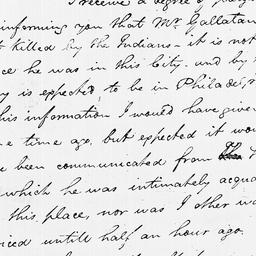 I receive a degree of
informing you that Mr Gallatan
killed by the Indians - it is not
ce he was in this City. and by
y is expected to be in Philade,
his information I would have given
e time ago, but expected it wou
e been communicated from
which he was intimately acqua
this place, nor was I other wa
iced untill half an hour ago.